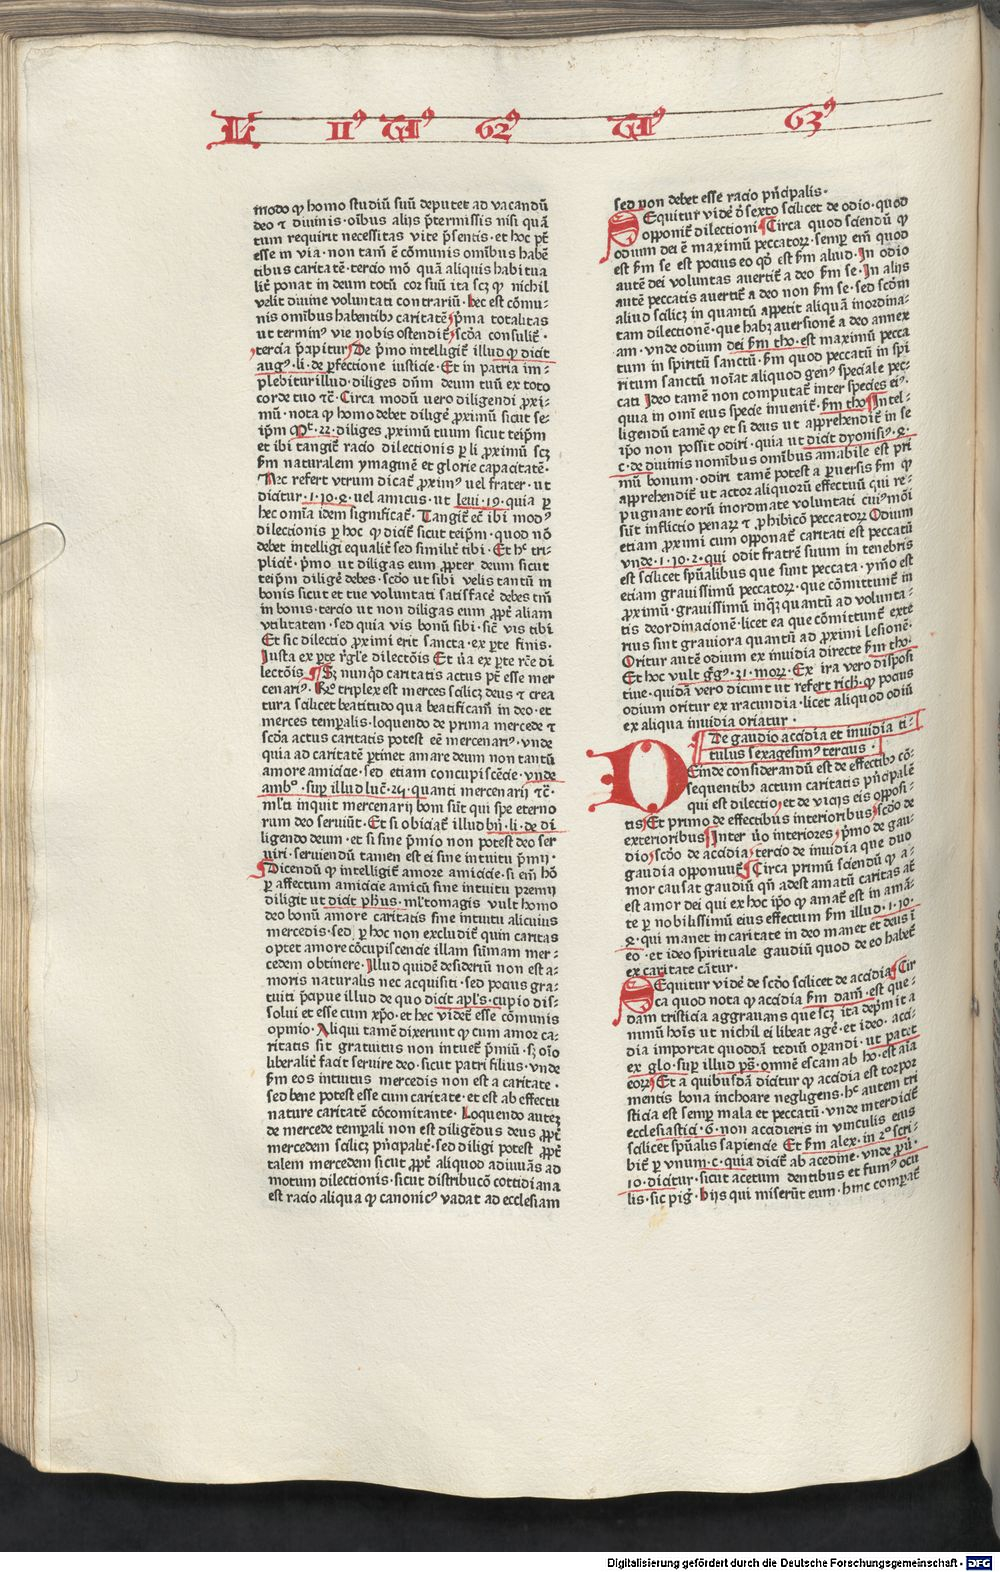 L IIꝰ TIꝰ 62ꝰ TIꝰ 63ꝰ
modo ꝙ homo studiū suū deputet ad vacandū
deo ⁊ diuinis·oībus alijs p̄termissis nisi quā
tum requirit necessitas vite p̄sentis·et hoc pt̄
esse in via·non tam̄ ē cōmunis omībus habē
tibus caritatē·tercio mō quā aliquis habitua
lit̄ ponat in deum totū cor suū ita scꝫ ꝙ nichil
velit diuine voluntati contrariū·hec est cōmu-
nis omībus habentibꝫ caritatē p̄ma totalitas
ut terminꝰ vie nobis ostendit̄ scd̄a consulit̄·
tercia p̄cipitur De p̄mo intelligit̄ illud ꝙ dicit
augꝰ·li·de ꝑfectione iusticie·Et in patria im-
plebitur illud·diliges dn̄m deum tuū ex toto
corde tuo ⁊c̄·Circa modū uero diligendi ꝓxi-
mū·nota ꝙ homo debet diligē ꝓximū sicut se
ip̄m Mt̄·22·diliges ꝓximū tuum sicut teip̄m
et ibi tangit̄ racio dilectionis ꝑ li ꝓximū scꝫ
scd̄m naturalem ymaginē et glorie capacitatē·
Nec refert vtrum dicat̄ ꝓximꝰ uel frater·ut
dicitur·1·10·4·uel amicus·ut leui·19·quia ꝑ
hec omīa idem significat̄·Tangit̄ ec̄ ibi modꝰ
dilectionis ꝑ hoc ꝙ dicit̄ sicut teip̄m·quod nō
debet intelligi equalit̄ sed similit̄ tibi·Et hͨ tri-
plicit̄·p̄mo ut diligas eum ꝓpter deum sicut
teip̄m diligē debes·scd̄o ut sibi velis tantū in
bonis sicut et tue voluntati satisfacē debes tm̄
in bonis·tercio ut non diligas eum ꝓpt̄ aliam
vtilitatem·sed quia vis bonū sibi·sic̄ vis tibi
Et sic dilectio ꝓximi erit sancta·ex ꝑte finis·
Iusta ex ꝑte rḡle dilectōis Et ūa ex ꝑte rc̄e di
lectōis Sꝫ nunqd̄ caritatis actus pt̄ esse mer
cenariꝰ· triplex est merces scilicꝫ deus ⁊ crea
tura scilicet beatitudo qua beatificam̄ in deo·et
merces temꝑalis·loquendo de prima mercede ⁊
scd̄a actus caritatis potest eē mercenariꝰ·vnde
quia ad caritatē ꝑtinet amare deum non tantū
amore amicicie·sed etiam concupiscēcie·vnde
ambꝰ·suꝑ illud luc̄· quanti mercenarij ⁊c̄·
ml̄ti inquit mercenarij boni sūt qui spe eterno
rum deo seruiūt·Et si obiciat̄ illud bn̄·li·de di
ligendo deum·et si sine p̄mio non potest deo ser
uiri·seruiendū tamen est ei sine intuitu p̄mij·
Dicendū ꝙ intelligit̄ amore amicicie·si em̄ hō
ꝑ affectum amicicie amicū sine intuitu premij
diligit ut dicit ph̄us·ml̄tomagis vult homo
deo bonū amore caritatis sine intuitu alicuius
mercedis·sed ꝑ hoc non excludit̄ quin caritas
optet amore cōcupiscencie illam sūmam mer-
cedem obtinere·Illud quidē desideriū non est a-
moris naturalis nec acquisiti·sed pocius gra-
tuiti p̄cipue illud de quo dicit apl̄s·cupio dis-
solui et esse cum xp̄o·et hec videt̄ esse cōmunis
opinio·Aliqui tamē dixerunt ꝙ cum amor ca-
ritatis sit gratuitus non intuet̄ p̄miū·sꝫ oīo
liberalit̄ facit seruire deo·sicut patri filius·vnde
scd̄m eos intuitus mercedis non est a caritate·
sed bene potest esse cum caritate·et est ab effectu
nature caritatē cōcomitante·Loquendo auteꝫ
de mercede temꝑali non est diligēdus deus ꝓpt̄
mercedem scilicꝫ p̄ncipalit̄·sed diligi potest ꝓpt̄
talem mercedem sicut ꝓpt̄ aliquod adiuuās ad
motum dilectionis·sicut distribucō cottidiana
est racio aliqua ꝙ canonicꝰ vadat ad ecclesiam
sed non debet esse racio pn̄cipalis·
Sequitur videꝰ ꝺ̄ sexto scilicet de odio·quod
opponit̄ dilectioni Circa quod sciendū ꝙ
odium dei ē maximū peccatoꝝ·semꝑ em̄ quod
est ꝑ se est pocius eo qd̄ est ꝑ aliud·In odio
autē dei voluntas auertit̄ a deo ꝑ se·In alijs
autē peccatis auertit̄ a deo non ꝑ se·sed scd̄m
aliud scilicꝫ in quantū appetit aliquā inordina-
tam dilectionē·que habꝫ auersionē a deo annex
am·vnde odium dei scd̄m tho·est maximū pecca
tum in spiritū sanctū·scd̄m quod peccatū in spi
ritum sanctū noīat aliquod genꝰ speciale pec-
cati Ideo tamē non computat̄ inter species eiꝰ·
quia in omī eius specie inuenit̄·scd̄m tho Intel-
ligendū tamē ꝙ et si deus ut apprehendit̄ in se
ip̄o non possit odiri·quia ut dicit dyonisiꝰ·4·
c·de diuinis nomībus omībus amabile est pri
mū bonum·odiri tamē potest a ꝑuersis scd̄m ꝙ
apprehendit̄ ut actor aliquorū effectuū qui re-
pugnant eorū inordinate voluntati cuiꝰmōi
sūt inflictio penaꝝ ⁊ ꝓhibicō peccatoꝝ Odium
etiam ꝓximi cum opponat̄ caritati est peccatū
vnde·1·10·2·qui odit fratrē suum in tenebris
est scilicet spūalibus que sunt peccata·ymo est
etiam grauissimū peccatoꝝ·que cōmittunt̄ in
ꝓximū·grauissimū inqꝫ quantū ad volunta-
tis deordinacionē·licet ea que cōmittunt̄ exte
rius sint grauiora quantū ad ꝓximi lesionē·
Oritur autē odium ex inuidia directe scd̄m tho·
Et hoc vult gg̅ꝰ·31·moꝝ·Ex ira vero disposi
tiue·quidā vero dicunt ut refert rich·ꝙ pocius
odium oritur ex iracundia·licet aliquod odiū
ex aliqua inuidia oriatur·
De gaudio accidia et inuidia ti-
tulus sexagesimꝰ tercius·
Deinde considerandū est de effectibꝫ cō-
sequentibꝫ actum caritatis pn̄cipalē
qui est dilectio, et de vicijs eis opposi-
tis Et primo de effectibus interioribus scd̄o de
exterioribus Inter ūo interiores p̄mo de gau-
dio scd̄o de accidia tercio de inuidia que duo
gaudia opponunt̄ Circa primū sciendū ꝙ a-
mor causat gaudiū qn̄ adest amatū caritas at̄
est amor dei qui ex hoc ip̄o ꝙ amat̄ est in amā-
te ꝑ nobilissimū eius effectum scd̄m illud·1·10·
4·qui manet in caritate in deo manet et deus ī
eo·et ideo spirituale gaudiū quod de eo habet̄
ex caritate cāt̄ur·
Sequitur videꝰ de scd̄o scilicet de accidia Cir
ca quod nota ꝙ accidia scd̄m dam̄·est que-
dam tristicia aggrauans que scꝫ ita dep̄mit a
nimū hoīs ut nichil ei libeat agē·et ideo·acci-
dia importat quoddā tediū oꝑandi·ut patet
ex glo·suꝑ illud ps̄·omnē escam ab hō·est aīa
eoꝝ Et a quibusdā dicitur ꝙ accidia est torpor
mentis bona inchoare negligens·hͨ autem tri
sticia est semꝑ mala et peccatū·vnde interdicit̄
ecclesiastici·6·non acadieris in vinculis eius
scilicet spūalis sapiencie Et scd̄m alex·in 2º scri-
bit̄ ꝑ vnum·c·quia dicit̄ ab acedine·vnde ꝓū·
10·dicitur·sicut acetum dentibus et fumꝰ ocu
lis·sic pigr̄·hijs qui miserūt eum·hinc comꝑat̄
Digitalisierung gefördert durch die Deutsche Forschungsgemeinschaft - DFG